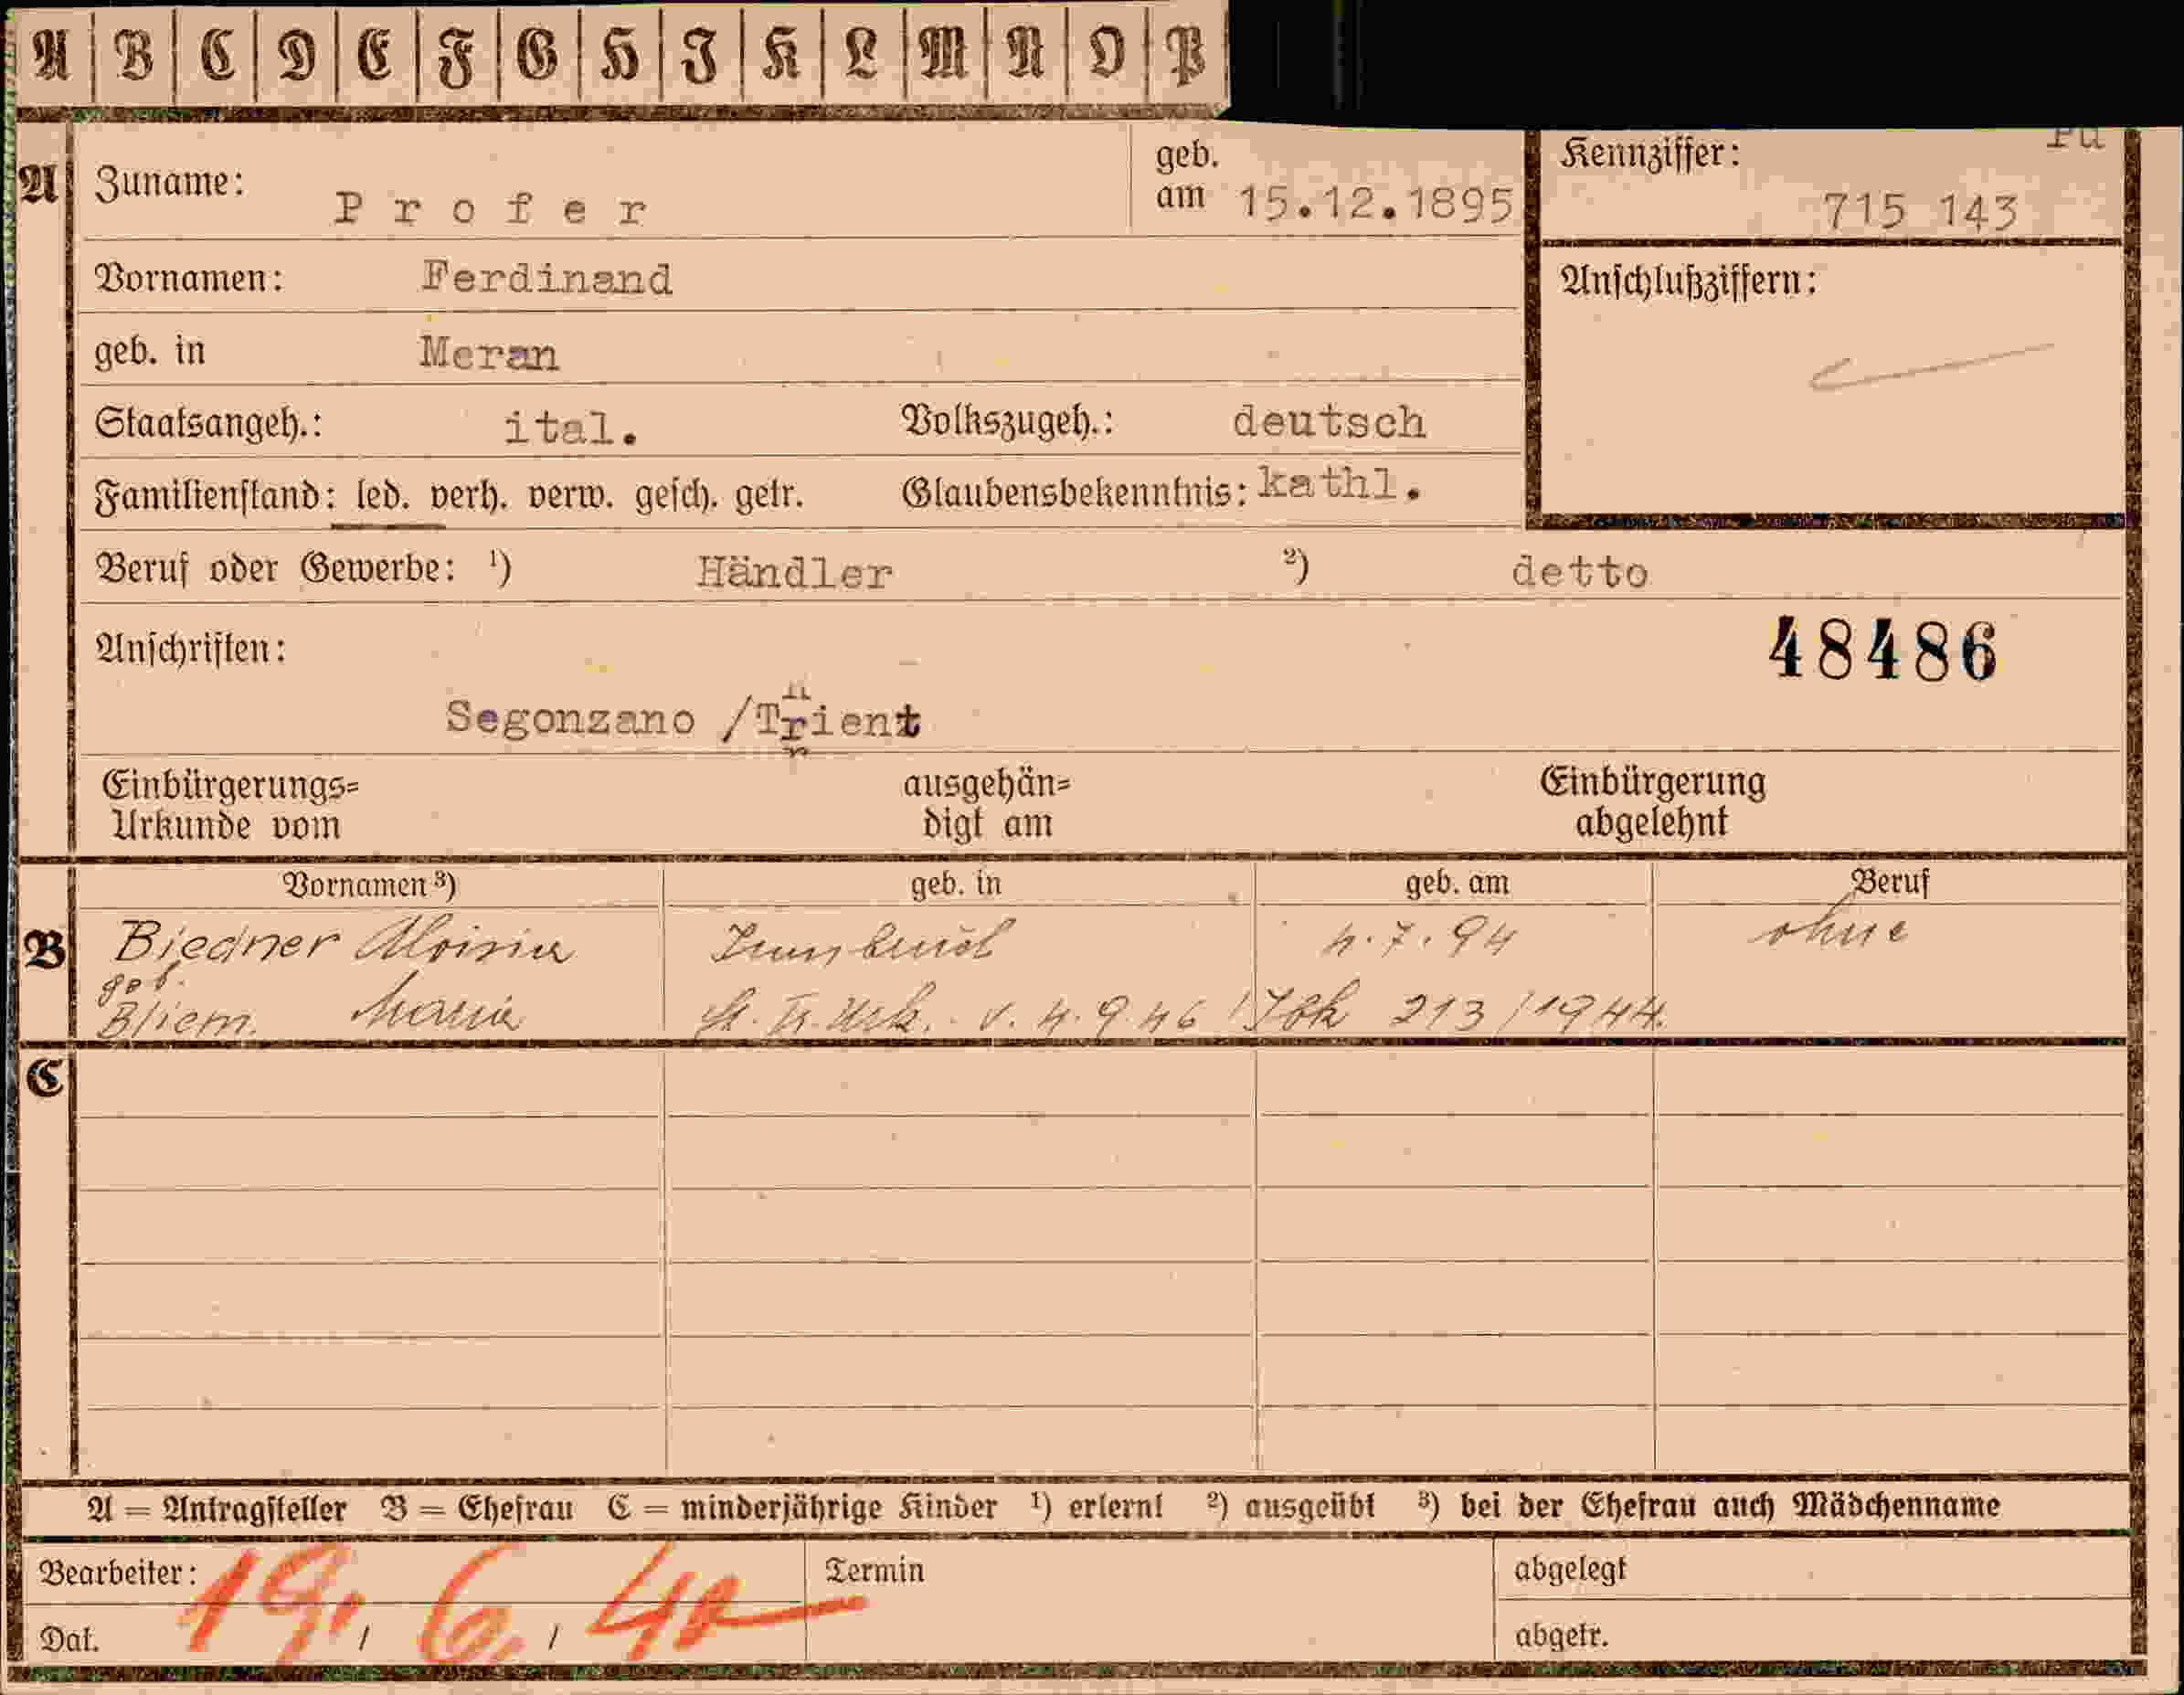 A B C D E F G H I K L M N O P
A Zuname: Profer geb. am 15.12.1895 Kennziffer: 715 143
Vornamen: Ferdinand Anschlußziffern:
geb. in Meran
Staatsangeh.: ital. Volkszugeh.: deutsch
Familienstand: led. verh. verw. gesch. getr. Glaubensbekenntnis: kathl.
Beruf oder Gewerbe: ¹) Händler ²) detto
Anschriften: 48486
Segonzano /Trient
Einbürgerungs= ausgehän= Einbürgerung
Urkunde vom digt am abgelehnt
Vornamen ³) geb. in geb. am Beruf
B Biedner Aloisia Innsbruck 4.7.94 ohne
geb.
Bliem. Maria v. 4.9.46 Ibk 213/1944.
C
A = Antragsteller B = Ehefrau C = minderjährige Kinder ¹) erlernt ²) ausgeübt ³) bei der Ehefrau auch Mädchenname
Bearbeiter: Termin abgelegt
Dat. 19. / 6. / 42 abgetr.